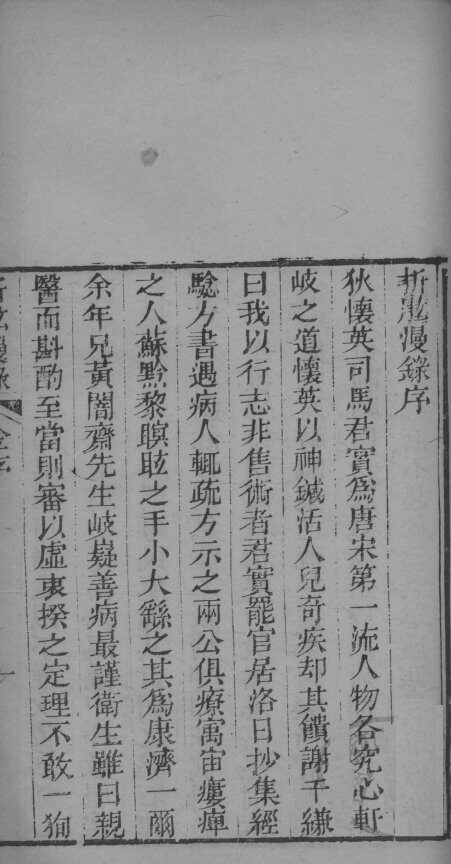 折肱漫錄序
狄懷英司馬君實爲唐宋第一流人物各究心軒
岐之道懷英以神鍼活人兒奇疾却其饋謝千縑
曰我以行志非售術者君實罷官居洛日抄集經
驗方書遇病人輒疏方示之兩公俱療寓宙瘻瘴
之人蘇黔黎瞑眩之手小大繇之其爲康濟一爾
余年兄黃闇齋先生岐嶷善病最謹衛生雖曰親
醫而斟酌至當則審以虛衷揆之定理不敢一狥
折肱漫錄 序